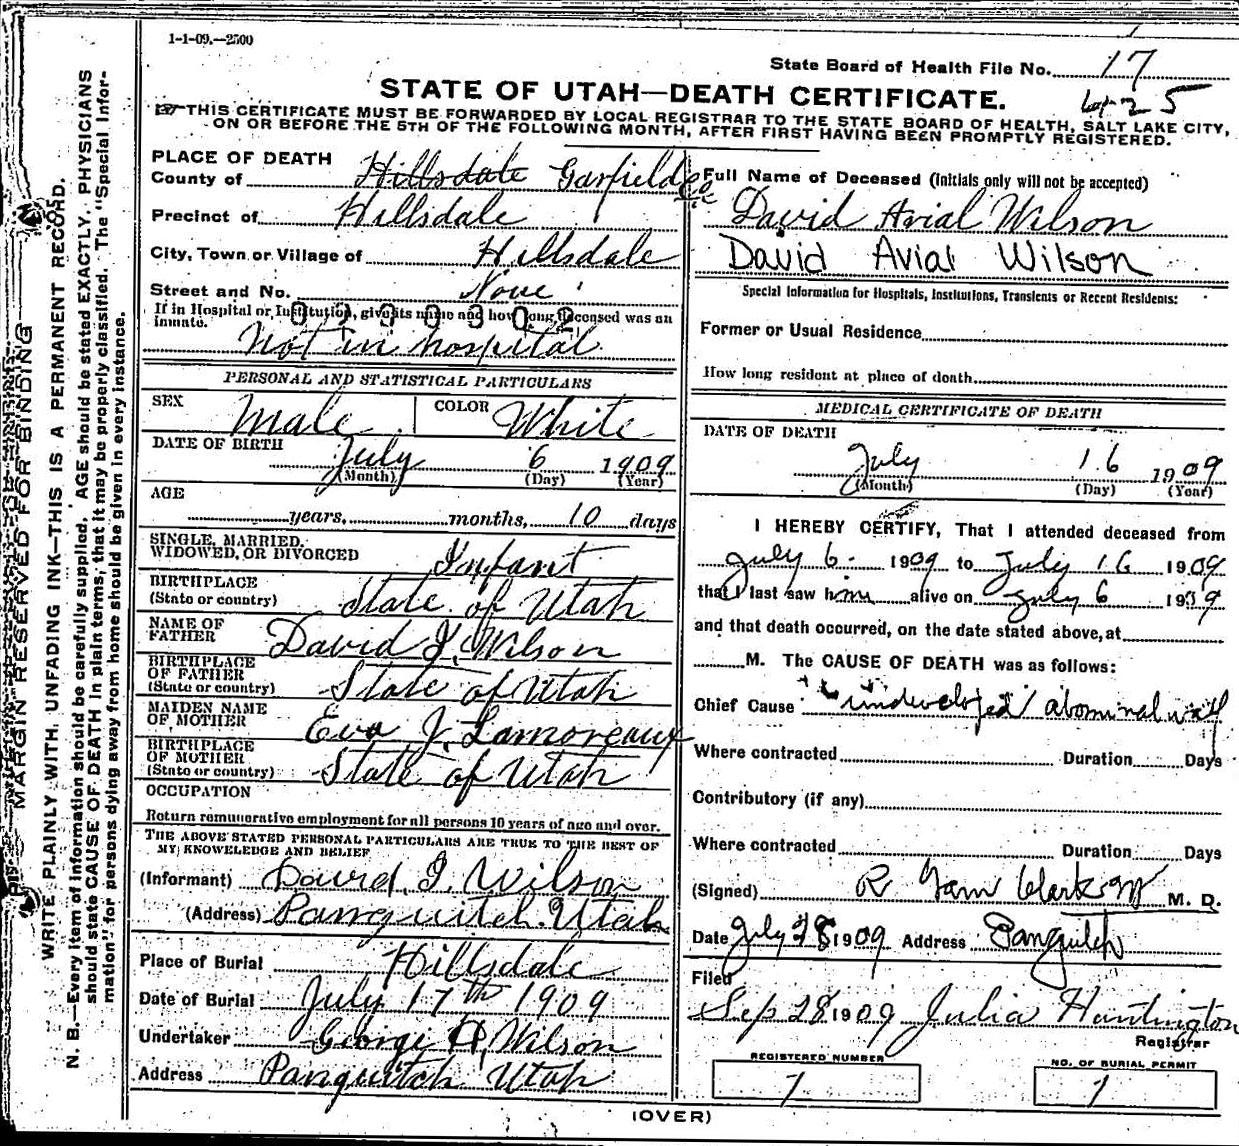 1-1-09.—2500
State Board of Health File No. 17
425
STATE OF UTAH—DEATH CERTIFICATE.
THIS CERTIFICATE MUST BE FORWARDED BY LOCAL REGISTRAR TO THE STATE BOARD OF HEALTH, SALT LAKE CITY,
ON OR BEFORE THE 5TH OF THE FOLLOWING MONTH, AFTER FIRST HAVING BEEN PROMPTLY REGISTERED.
MARGIN RESERVED FOR BINDING
WRITE PLAINLY WITH UNFADING INK—THIS IS A PERMANENT RECORD.
N. B.—Every item of information should be carefully supplied. AGE should be stated EXACTLY. PHYSICIANS
should state CAUSE OF DEATH in plain terms, that it may be properly classified. The "Special Infor-
mation" for persons dying away from home should be given in every instance.
PLACE OF DEATH
County of Hillsdale Garfield Co
Precinct of Hillsdale
City, Town or Village of Hillsdale
Street and No. None
If in Hospital or Institution, give its name and how long deceased was an
inmate.
Not in hospital
PERSONAL AND STATISTICAL PARTICULARS
SEX Male COLOR White
DATE OF BIRTH
July 6 1909
(Month) (Day) (Year)
AGE
years, months, 10 days
SINGLE, MARRIED,
WIDOWED, OR DIVORCED Infant
BIRTHPLACE
(State or country) State of Utah
NAME OF
FATHER David I. Wilson
BIRTHPLACE
OF FATHER
(State or country) State of Utah
MAIDEN NAME
OF MOTHER Eva J. Lamoreaux
BIRTHPLACE
OF MOTHER
(State or country) State of Utah
OCCUPATION
Return remunerative employment for all persons 10 years of age and over.
THE ABOVE STATED PERSONAL PARTICULARS ARE TRUE TO THE BEST OF
MY KNOWELEDGE AND BELIEF
(Informant) David I. Wilson
(Address) Panguitch Utah
Place of Burial Hillsdale
Date of Burial July 17th 1909
Undertaker George H. Wilson
Address Panguitch Utah
Full Name of Deceased (Initials only will not be accepted)
David Avial Wilson
David Avial Wilson
Special Information for Hospitals, Institutions, Transients or Recent Residents:
Former or Usual Residence
How long resident at place of death
MEDICAL CERTIFICATE OF DEATH
DATE OF DEATH
July 16 1909
(Month) (Day) (Year)
I HEREBY CERTIFY, That I attended deceased from
July 6 1909 to July 16 1909
that I last saw him alive on July 6 1909
and that death occurred, on the date stated above, at
M. The CAUSE OF DEATH was as follows:
Chief Cause undeveloped abominal wall
Where contracted Duration Days
Contributory (if any)
Where contracted Duration Days
(Signed) R Garn Clark M. D.
Date July 28 1909 Address Panguitch
Filed
Sep 28 1909 Julia Huntington
Registrar
REGISTERED NUMBER
7
NO. OF BURIAL PERMIT
1
(OVER)